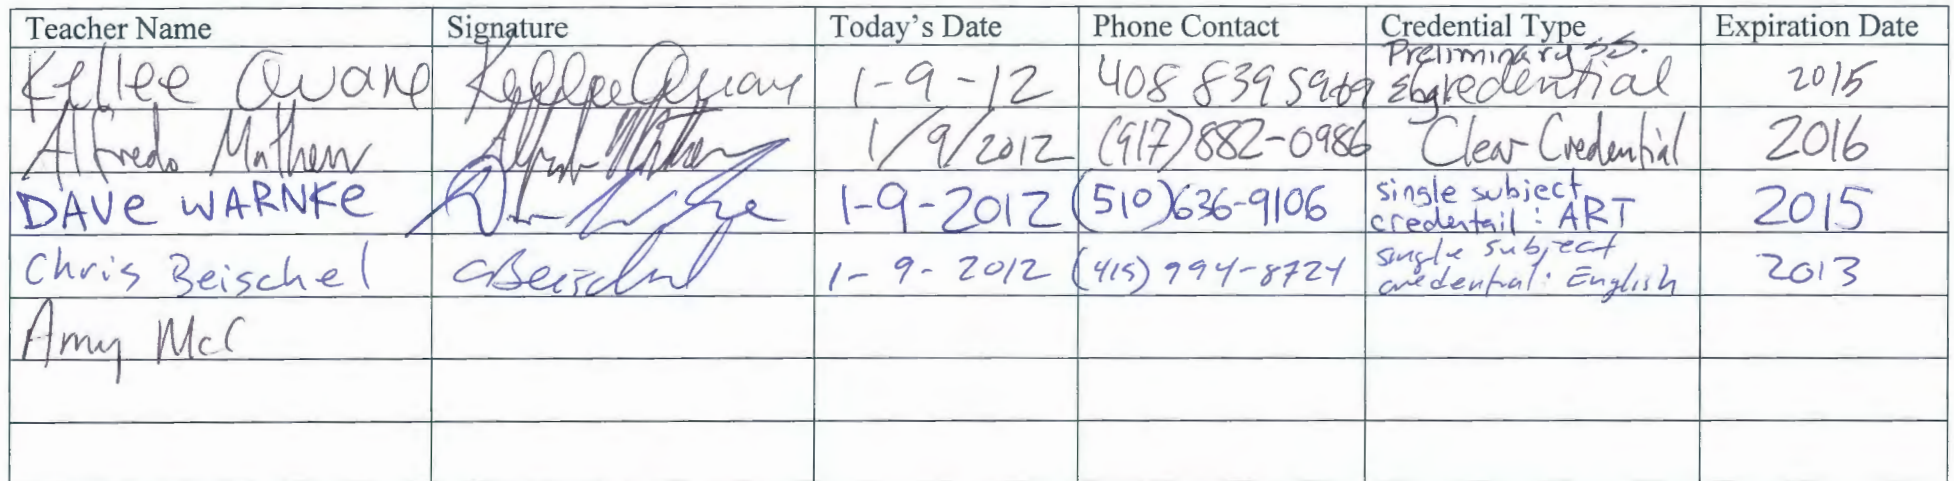 Teacher Name Signature Today's Date Phone Contact Credential Type Expiration Date
Kellee 1-9-12 408 839 5969 Preliminary S.S. 2015
Credential
Alfredo Mathew Alfredo Mathew 1/9/2012 (917)882-0986 Clear Credential 2016
DAVE WARNKE 1-9-2012 (510)636-9106 single subject 2015
credentail: ART
Chris Beischel CBeischel 1-9-2012 (415) 994-8724 single subject 2013
credential: English
Amy McC